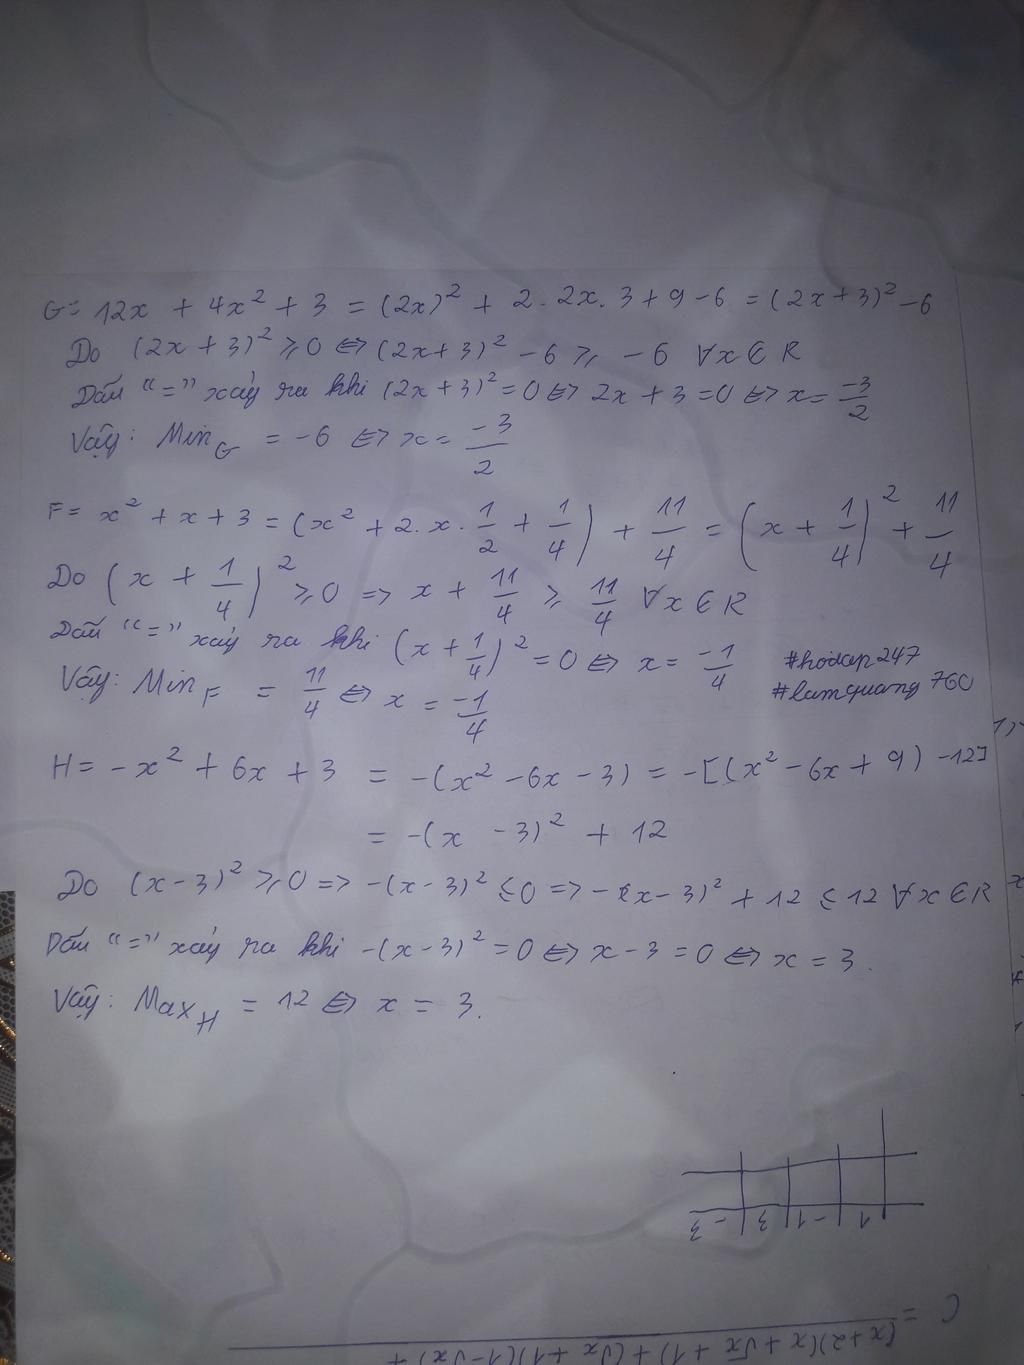 G = 12x + 4x² + 3 = (2x)² + 2 . 2x . 3 + 9 - 6 = (2x + 3)² - 6
Do (2x + 3)² ≥ 0 ⇔ (2x + 3)² - 6 ≥ -6 ∀x ∈ R
Dấu "=" xảy ra khi (2x + 3)² = 0 ⇔ 2x + 3 = 0 ⇔ x = -3/2
Vậy: Min_G = -6 ⇔ x = -3/2
F = x² + x + 3 = (x² + 2.x.1/2 + 1/4) + 11/4 = (x + 1/4)² + 11/4
Do (x + 1/4)² ≥ 0 => x + 11/4 ≥ 11/4 ∀x ∈ R
Dấu "=" xảy ra khi (x + 1/4)² = 0 ⇔ x = -1/4 #hoidap247
Vậy: Min_F = 11/4 ⇔ x = -1/4 #lamquang760
H = -x² + 6x + 3 = -(x² - 6x - 3) = -[(x² - 6x + 9) - 12]
= -(x - 3)² + 12
Do (x - 3)² ≥ 0 => -(x - 3)² ≤ 0 => -(x - 3)² + 12 ≤ 12 ∀x ∈ R
Dấu "=" xảy ra khi -(x - 3)² = 0 ⇔ x - 3 = 0 ⇔ x = 3.
Vậy: Max_H = 12 ⇔ x = 3.
1 -1 3 -3
C = (x+2)(x + √x + 1) + (√x + 1)(1 - √x) +